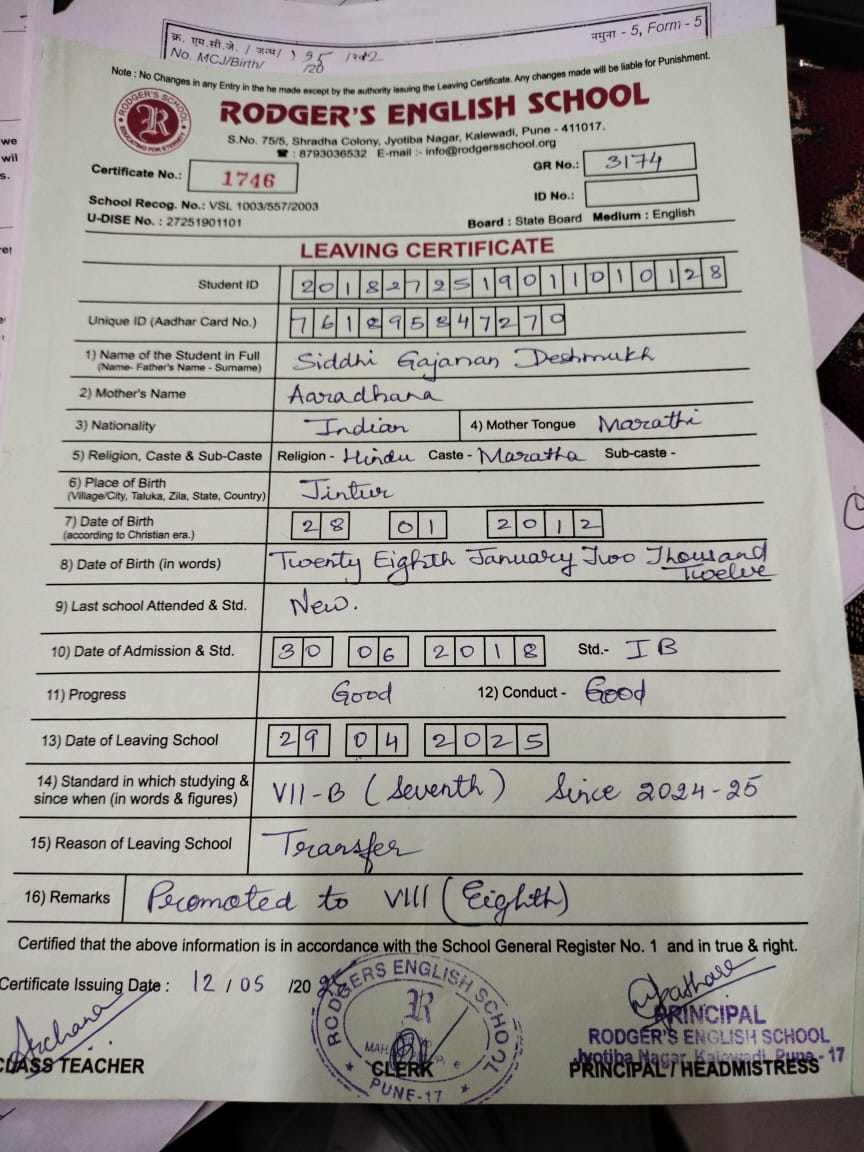 क्र. एम.सी.जे. / जन्म/
नमुना - 5, Form - 5
No. MCJ/Birth/ 95/20
Note : No Changes in any Entry in the he made except by the authority issuing the Leaving Certificate. Any changes made will be liable for Punishment.
RODGER'S SCHOOL
R
EDUCATING FOR ETERNITY
RODGER'S ENGLISH SCHOOL
S.No. 75/5, Shradha Colony, Jyotiba Nagar, Kalewadi, Pune - 411017.
☎ : 8793036532 E-mail :- info@rodgersschool.org
Certificate No.: 1746
GR No.: 3174
ID No.:
School Recog. No.: VSL 1003/557/2003
U-DISE No. : 27251901101
Board : State Board Medium : English
LEAVING CERTIFICATE
Student ID 2018272519011010128
Unique ID (Aadhar Card No.) 761895847270
1) Name of the Student in Full Siddhi Gajanan Deshmukh
(Name- Father's Name - Surname)
2) Mother's Name Aaradhana
3) Nationality Indian 4) Mother Tongue Marathi
5) Religion, Caste & Sub-Caste Religion - Hindu Caste - Maratha Sub-caste -
6) Place of Birth Jintur
(Village/City, Taluka, Zila, State, Country)
7) Date of Birth 28 01 2012
(according to Christian era.)
8) Date of Birth (in words) Twenty Eighth January Two Thousand
Twelve
9) Last school Attended & Std. New.
10) Date of Admission & Std. 30 06 2018 Std.- I B
11) Progress Good 12) Conduct - Good
13) Date of Leaving School 29 04 2025
14) Standard in which studying & since when (in words & figures) VII-B (Seventh) Since 2024-25
15) Reason of Leaving School Transfer
16) Remarks Promoted to VIII (Eighth)
Certified that the above information is in accordance with the School General Register No. 1 and in true & right.
Certificate Issuing Date : 12 / 05 /20 25
RODGERS ENGLISH SCHOOL
R
PUNE-17
Archana
CLASS TEACHER
CLERK
PRINCIPAL
RODGER'S ENGLISH SCHOOL
Jyotiba Nagar, Kalewadi, Pune - 17
PRINCIPAL / HEADMISTRESS